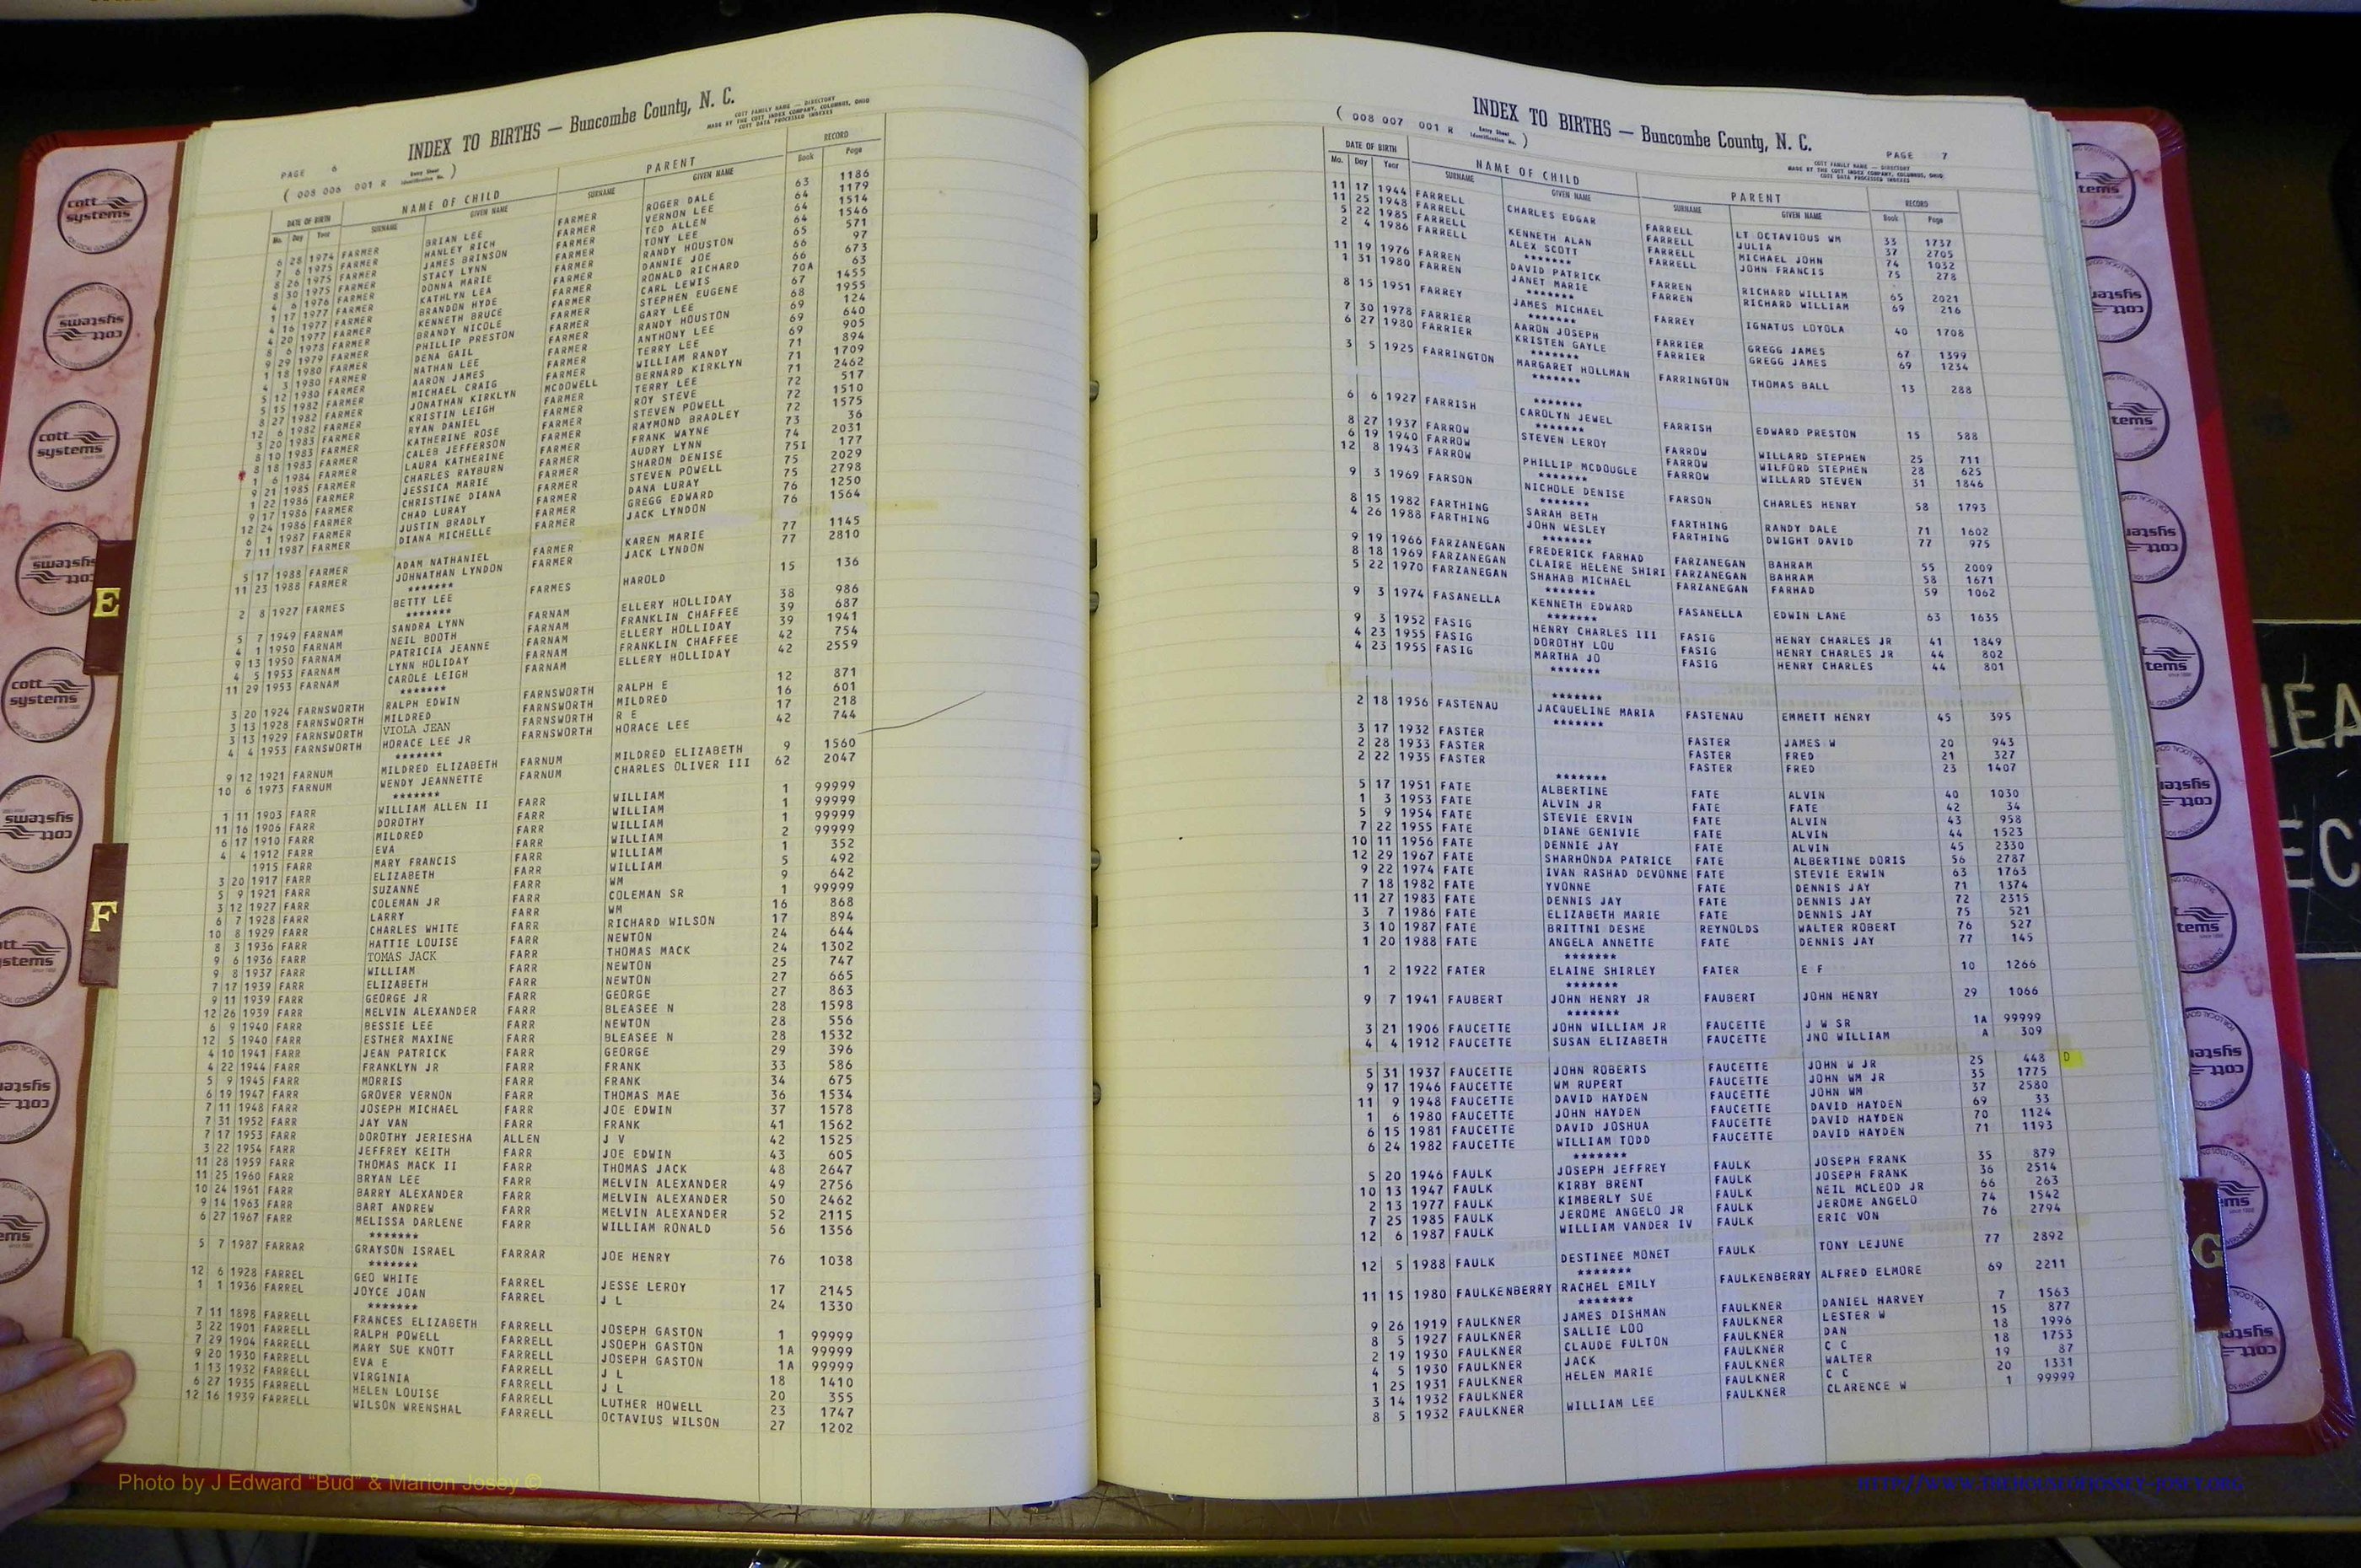 PAGE 6
INDEX TO BIRTHS — Buncombe County, N. C.
COTT FAMILY NAME — DIRECTORY
MADE BY THE COTT INDEX COMPANY, COLUMBUS, OHIO
COTT DATA PROCESSED INDEXES
( 008 006 001 R Entry Sheet Identification No. )
DATE OF BIRTH NAME OF CHILD PARENT RECORD
Mo. Day Year SURNAME GIVEN NAME SURNAME GIVEN NAME Book Page
6 28 1974 FARMER BRIAN LEE FARMER ROGER DALE 63 1186
7 6 1975 FARMER HANLEY RICH FARMER VERNON LEE 64 1179
8 26 1975 FARMER JAMES BRINSON FARMER TED ALLEN 64 1514
8 30 1975 FARMER STACY LYNN FARMER TONY LEE 64 1546
4 6 1976 FARMER DONNA MARIE FARMER RANDY HOUSTON 65 571
1 17 1977 FARMER KATHLYN LEA FARMER DANNIE JOE 66 97
4 16 1977 FARMER BRANDON HYDE FARMER RONALD RICHARD 66 673
4 20 1977 FARMER KENNETH BRUCE FARMER CARL LEWIS 70A 63
8 6 1978 FARMER BRANDY NICOLE FARMER STEPHEN EUGENE 67 1455
9 29 1979 FARMER PHILLIP PRESTON FARMER GARY LEE 68 1955
1 18 1980 FARMER DENA GAIL FARMER RANDY HOUSTON 69 124
4 3 1980 FARMER NATHAN LEE FARMER ANTHONY LEE 69 640
5 12 1980 FARMER AARON JAMES FARMER TERRY LEE 69 905
5 15 1982 FARMER MICHAEL CRAIG MCDOWELL WILLIAM RANDY 71 894
8 27 1982 FARMER JONATHAN KIRKLYN FARMER BERNARD KIRKLYN 71 1709
12 6 1982 FARMER KRISTIN LEIGH FARMER TERRY LEE 71 2462
3 20 1983 FARMER RYAN DANIEL FARMER ROY STEVE 72 517
8 10 1983 FARMER KATHERINE ROSE FARMER STEVEN POWELL 72 1510
8 18 1983 FARMER CALEB JEFFERSON FARMER RAYMOND BRADLEY 72 1575
1 6 1984 FARMER LAURA KATHERINE FARMER FRANK WAYNE 73 36
9 21 1985 FARMER CHARLES RAYBURN FARMER AUDRY LYNN 74 2031
1 22 1986 FARMER JESSICA MARIE FARMER SHARON DENISE 75I 177
9 17 1986 FARMER CHRISTINE DIANA FARMER STEVEN POWELL 75 2029
12 24 1986 FARMER CHAD LURAY FARMER DANA LURAY 75 2798
6 1 1987 FARMER JUSTIN BRADLY FARMER GREGG EDWARD 76 1250
7 11 1987 FARMER DIANA MICHELLE FARMER JACK LYNDON 76 1564
5 17 1988 FARMER ADAM NATHANIEL FARMER KAREN MARIE 77 1145
11 23 1988 FARMER JOHNATHAN LYNDON FARMER JACK LYNDON 77 2810
*******
2 8 1927 FARMES BETTY LEE FARMES HAROLD 15 136
*******
5 7 1949 FARNAM SANDRA LYNN FARNAM ELLERY HOLLIDAY 38 986
4 1 1950 FARNAM NEIL BOOTH FARNAM FRANKLIN CHAFFEE 39 687
9 13 1950 FARNAM PATRICIA JEANNE FARNAM ELLERY HOLLIDAY 39 1941
4 5 1953 FARNAM LYNN HOLIDAY FARNAM FRANKLIN CHAFFEE 42 754
11 29 1953 FARNAM CAROLE LEIGH FARNAM ELLERY HOLLIDAY 42 2559
*******
3 20 1924 FARNSWORTH RALPH EDWIN FARNSWORTH RALPH E 12 871
3 13 1928 FARNSWORTH MILDRED FARNSWORTH MILDRED 16 601
3 13 1929 FARNSWORTH VIOLA JEAN FARNSWORTH R E 17 218
4 4 1953 FARNSWORTH HORACE LEE JR FARNSWORTH HORACE LEE 42 744
*******
9 12 1921 FARNUM MILDRED ELIZABETH FARNUM MILDRED ELIZABETH 9 1560
10 6 1973 FARNUM WENDY JEANNETTE FARNUM CHARLES OLIVER III 62 2047
*******
1 11 1903 FARR WILLIAM ALLEN II FARR WILLIAM 1 99999
11 16 1906 FARR DOROTHY FARR WILLIAM 1 99999
6 17 1910 FARR MILDRED FARR WILLIAM 1 99999
4 4 1912 FARR EVA FARR WILLIAM 2 99999
1915 FARR MARY FRANCIS FARR WILLIAM 1 352
3 20 1917 FARR ELIZABETH FARR WILLIAM 5 492
5 9 1921 FARR SUZANNE FARR WM 9 642
3 12 1927 FARR COLEMAN JR FARR COLEMAN SR 1 99999
6 7 1928 FARR LARRY FARR WM 16 868
10 8 1929 FARR CHARLES WHITE FARR RICHARD WILSON 17 894
8 3 1936 FARR HATTIE LOUISE FARR NEWTON 24 644
9 6 1936 FARR TOMAS JACK FARR THOMAS MACK 24 1302
9 8 1937 FARR WILLIAM FARR NEWTON 25 747
7 17 1939 FARR ELIZABETH FARR NEWTON 27 665
9 11 1939 FARR GEORGE JR FARR GEORGE 27 863
12 26 1939 FARR MELVIN ALEXANDER FARR BLEASEE N 28 1598
6 9 1940 FARR BESSIE LEE FARR NEWTON 28 556
12 5 1940 FARR ESTHER MAXINE FARR BLEASEE N 28 1532
4 10 1941 FARR JEAN PATRICK FARR GEORGE 29 396
4 22 1944 FARR FRANKLYN JR FARR FRANK 33 586
5 9 1945 FARR MORRIS FARR FRANK 34 675
6 19 1947 FARR GROVER VERNON FARR THOMAS MAE 36 1534
7 11 1948 FARR JOSEPH MICHAEL FARR JOE EDWIN 37 1578
7 31 1952 FARR JAY VAN FARR FRANK 41 1562
7 17 1953 FARR DOROTHY JERIESHA ALLEN J V 42 1525
3 22 1954 FARR JEFFREY KEITH FARR JOE EDWIN 43 605
11 28 1959 FARR THOMAS MACK II FARR THOMAS JACK 48 2647
11 25 1960 FARR BRYAN LEE FARR MELVIN ALEXANDER 49 2756
10 24 1961 FARR BARRY ALEXANDER FARR MELVIN ALEXANDER 50 2462
9 14 1963 FARR BART ANDREW FARR MELVIN ALEXANDER 52 2115
6 27 1967 FARR MELISSA DARLENE FARR WILLIAM RONALD 56 1356
*******
5 7 1987 FARRAR GRAYSON ISRAEL FARRAR JOE HENRY 76 1038
*******
12 6 1928 FARREL GEO WHITE FARREL JESSE LEROY 17 2145
1 1 1936 FARREL JOYCE JOAN FARREL J L 24 1330
*******
7 11 1898 FARRELL FRANCES ELIZABETH FARRELL JOSEPH GASTON 1 99999
3 22 1901 FARRELL RALPH POWELL FARRELL JSOEPH GASTON 1A 99999
7 29 1904 FARRELL MARY SUE KNOTT FARRELL JOSEPH GASTON 1A 99999
9 20 1930 FARRELL EVA E FARRELL J L 18 1410
1 13 1932 FARRELL VIRGINIA FARRELL J L 20 355
6 27 1935 FARRELL HELEN LOUISE FARRELL LUTHER HOWELL 23 1747
12 16 1939 FARRELL WILSON WRENSHAL FARRELL OCTAVIUS WILSON 27 1202
( 008 007 001 R Entry Sheet Identification No. )
INDEX TO BIRTHS — Buncombe County, N. C.
PAGE 7
COTT FAMILY NAME — DIRECTORY
MADE BY THE COTT INDEX COMPANY, COLUMBUS, OHIO
COTT DATA PROCESSED INDEXES
DATE OF BIRTH NAME OF CHILD PARENT RECORD
Mo. Day Year SURNAME GIVEN NAME SURNAME GIVEN NAME Book Page
11 17 1944 FARRELL CHARLES EDGAR FARRELL LT OCTAVIOUS WM 33 1737
11 25 1948 FARRELL FARRELL JULIA 37 2705
5 22 1985 FARRELL KENNETH ALAN FARRELL MICHAEL JOHN 74 1032
2 4 1986 FARRELL ALEX SCOTT FARRELL JOHN FRANCIS 75 278
*******
11 19 1976 FARREN DAVID PATRICK FARREN RICHARD WILLIAM 65 2021
1 31 1980 FARREN JANET MARIE FARREN RICHARD WILLIAM 69 216
*******
8 15 1951 FARREY JAMES MICHAEL FARREY IGNATUS LOYOLA 40 1708
*******
7 30 1978 FARRIER AARON JOSEPH FARRIER GREGG JAMES 67 1399
6 27 1980 FARRIER KRISTEN GAYLE FARRIER GREGG JAMES 69 1234
*******
3 5 1925 FARRINGTON MARGARET HOLLMAN FARRINGTON THOMAS BALL 13 288
*******
*******
6 6 1927 FARRISH CAROLYN JEWEL FARRISH EDWARD PRESTON 15 588
*******
8 27 1937 FARROW STEVEN LEROY FARROW WILLARD STEPHEN 25 711
6 19 1940 FARROW FARROW WILFORD STEPHEN 28 625
12 8 1943 FARROW PHILLIP MCDOUGLE FARROW WILLARD STEVEN 31 1846
*******
9 3 1969 FARSON NICHOLE DENISE FARSON CHARLES HENRY 58 1793
*******
8 15 1982 FARTHING SARAH BETH FARTHING RANDY DALE 71 1602
4 26 1988 FARTHING JOHN WESLEY FARTHING DWIGHT DAVID 77 975
*******
9 19 1966 FARZANEGAN FREDERICK FARHAD FARZANEGAN BAHRAM 55 2009
8 18 1969 FARZANEGAN CLAIRE HELENE SHIRI FARZANEGAN BAHRAM 58 1671
5 22 1970 FARZANEGAN SHAHAB MICHAEL FARZANEGAN FARHAD 59 1062
*******
9 3 1974 FASANELLA KENNETH EDWARD FASANELLA EDWIN LANE 63 1635
*******
9 3 1952 FASIG HENRY CHARLES III FASIG HENRY CHARLES JR 41 1849
4 23 1955 FASIG DOROTHY LOU FASIG HENRY CHARLES JR 44 802
4 23 1955 FASIG MARTHA JO FASIG HENRY CHARLES 44 801
*******
*******
2 18 1956 FASTENAU JACQUELINE MARIA FASTENAU EMMETT HENRY 45 395
*******
3 17 1932 FASTER FASTER JAMES W 20 943
2 28 1933 FASTER FASTER FRED 21 327
2 22 1935 FASTER FASTER FRED 23 1407
*******
5 17 1951 FATE ALBERTINE FATE ALVIN 40 1030
1 3 1953 FATE ALVIN JR FATE FATE 42 34
5 9 1954 FATE STEVIE ERVIN FATE ALVIN 43 958
7 22 1955 FATE DIANE GENIVIE FATE ALVIN 44 1523
10 11 1956 FATE DENNIE JAY FATE ALVIN 45 2330
12 29 1967 FATE SHARHONDA PATRICE FATE ALBERTINE DORIS 56 2787
9 22 1974 FATE IVAN RASHAD DEVONNE FATE STEVIE ERWIN 63 1763
7 18 1982 FATE YVONNE FATE DENNIS JAY 71 1374
11 27 1983 FATE DENNIS JAY FATE DENNIS JAY 72 2315
3 7 1986 FATE ELIZABETH MARIE FATE DENNIS JAY 75 521
3 10 1987 FATE BRITTNI DESHE REYNOLDS WALTER ROBERT 76 527
1 20 1988 FATE ANGELA ANNETTE FATE DENNIS JAY 77 145
*******
1 2 1922 FATER ELAINE SHIRLEY FATER E F 10 1266
*******
9 7 1941 FAUBERT JOHN HENRY JR FAUBERT JOHN HENRY 29 1066
*******
3 21 1906 FAUCETTE JOHN WILLIAM JR FAUCETTE J W SR 1A 99999
4 4 1912 FAUCETTE SUSAN ELIZABETH FAUCETTE JNO WILLIAM A 309
5 31 1937 FAUCETTE JOHN ROBERTS FAUCETTE JOHN W JR 25 448 D
9 17 1946 FAUCETTE WM RUPERT FAUCETTE JOHN WM JR 35 1775
11 9 1948 FAUCETTE DAVID HAYDEN FAUCETTE JOHN WM 37 2580
1 6 1980 FAUCETTE JOHN HAYDEN FAUCETTE DAVID HAYDEN 69 33
6 15 1981 FAUCETTE DAVID JOSHUA FAUCETTE DAVID HAYDEN 70 1124
6 24 1982 FAUCETTE WILLIAM TODD FAUCETTE DAVID HAYDEN 71 1193
*******
5 20 1946 FAULK JOSEPH JEFFREY FAULK JOSEPH FRANK 35 879
10 13 1947 FAULK KIRBY BRENT FAULK JOSEPH FRANK 36 2514
2 13 1977 FAULK KIMBERLY SUE FAULK NEIL MCLEOD JR 66 263
7 25 1985 FAULK JEROME ANGELO JR FAULK JEROME ANGELO 74 1542
12 6 1987 FAULK WILLIAM VANDER IV FAULK ERIC VON 76 2794
12 5 1988 FAULK DESTINEE MONET FAULK TONY LEJUNE 77 2892
*******
11 15 1980 FAULKENBERRY RACHEL EMILY FAULKENBERRY ALFRED ELMORE 69 2211
*******
9 26 1919 FAULKNER JAMES DISHMAN FAULKNER DANIEL HARVEY 7 1563
8 5 1927 FAULKNER SALLIE LOO FAULKNER LESTER W 15 877
2 19 1930 FAULKNER CLAUDE FULTON FAULKNER DAN 18 1996
4 5 1930 FAULKNER JACK FAULKNER C C 18 1753
1 25 1931 FAULKNER HELEN MARIE FAULKNER WALTER 19 87
3 14 1932 FAULKNER FAULKNER C C 20 1331
8 5 1932 FAULKNER WILLIAM LEE FAULKNER CLARENCE W 1 99999
E
F
G
cott systems
Photo by J Edward "Bud" & Marion Josey ©
HTTP://WWW.THEHOUSEOFJOSSEY-JOSEY.ORG